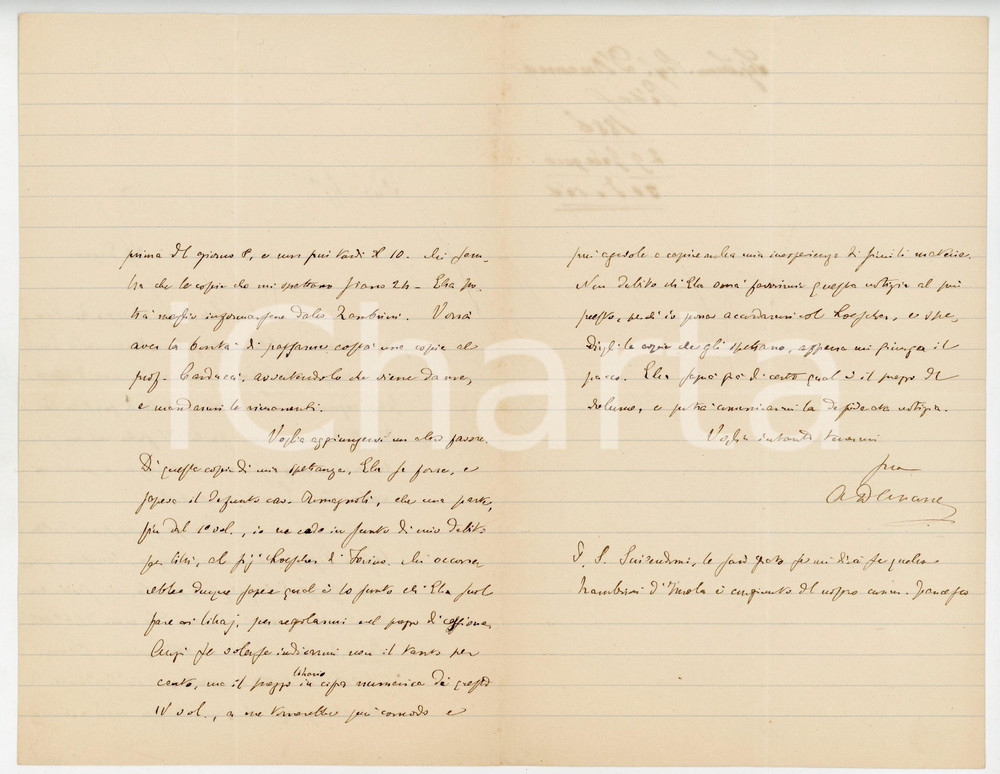 prima del giorno 8, e non più tardi del 10. Mi sem-
bra che le copie che mi spettano siano 24 - Ella po-
trà meglio informarsene dallo Zambrini. Vorrà
aver la bontà di passarne costà una copia al
prof. Carducci, avvertendolo che viene da me,
e mandarmi le rimanenti.
Voglia aggiungervi un altro favore.
Di queste copie di mia spettanza, Ella sa forse, e
sapeva il defunto cav. Romagnoli, che una parte,
fin dal 1º vol., io ne cedo in sconto di mio debito
per libri, al sig. Loescher di Torino. Mi occorre-
rebbe dunque sapere qual è lo sconto che Ella suol
fare ai libraj, per regolarmi nel prezzo di cessione.
Anzi se volesse indicarmi non il tanto per
cento, ma il prezzo librario in cifra numerica di questo
IV vol., a me tornerebbe più comodo e
più agevole a capire nella mia inesperienza di simili materie.
Non dubito che Ella vorrà favorirmi questa notizia al più
presto, perch'io possa accordarmi col Loescher, e spe-
dirgli le copie che gli spettano, appena mi giunga il
pacco. Ella saprà già di certo qual è il prezzo del
volume, e potrà comunicarmi la desiderata notizia.
Voglia intanto tenermi
suo
A D'Ancona
P. S. Scusandomi, le sarò grato se mi dirà se quello
Zambrini d'Imola è congiunto del nostro comm. Francesco
iCharta